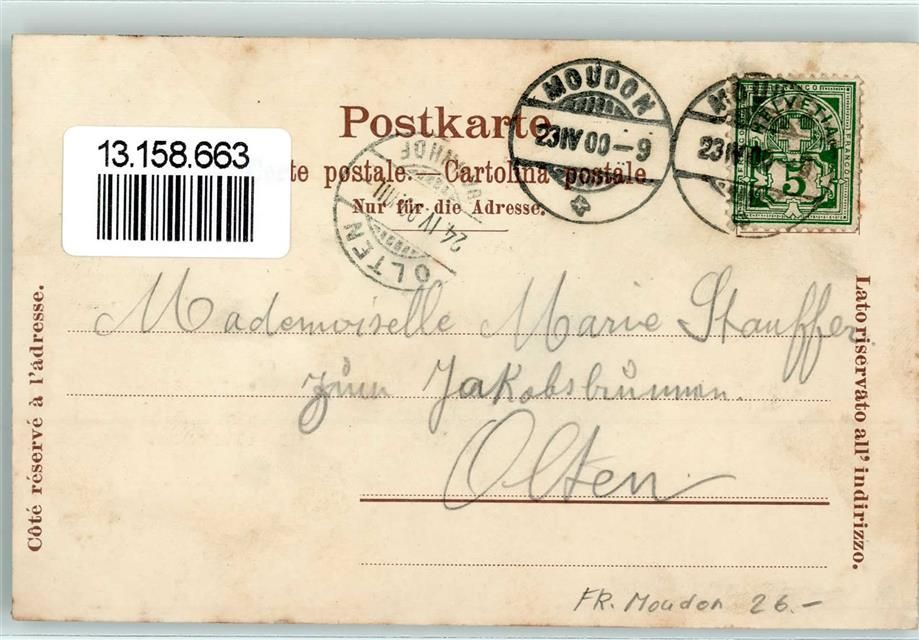 Postkarte.
13.158.663
Carte postale. — Cartolina postale
Nur für die Adresse.
MOUDON
23 IV 00 - 9
MOUDON
23 IV 00
FRANCO
HELVETIA
5
FRANCO
OLTEN
24. IV. 00
BAHNHOF
Côté réservé à l'adresse.
Lato riservato all' indirizzo.
Mademoiselle Marie Stauffer
zum Jakobsbrunnen.
Olten
FR. Moudon 26.-